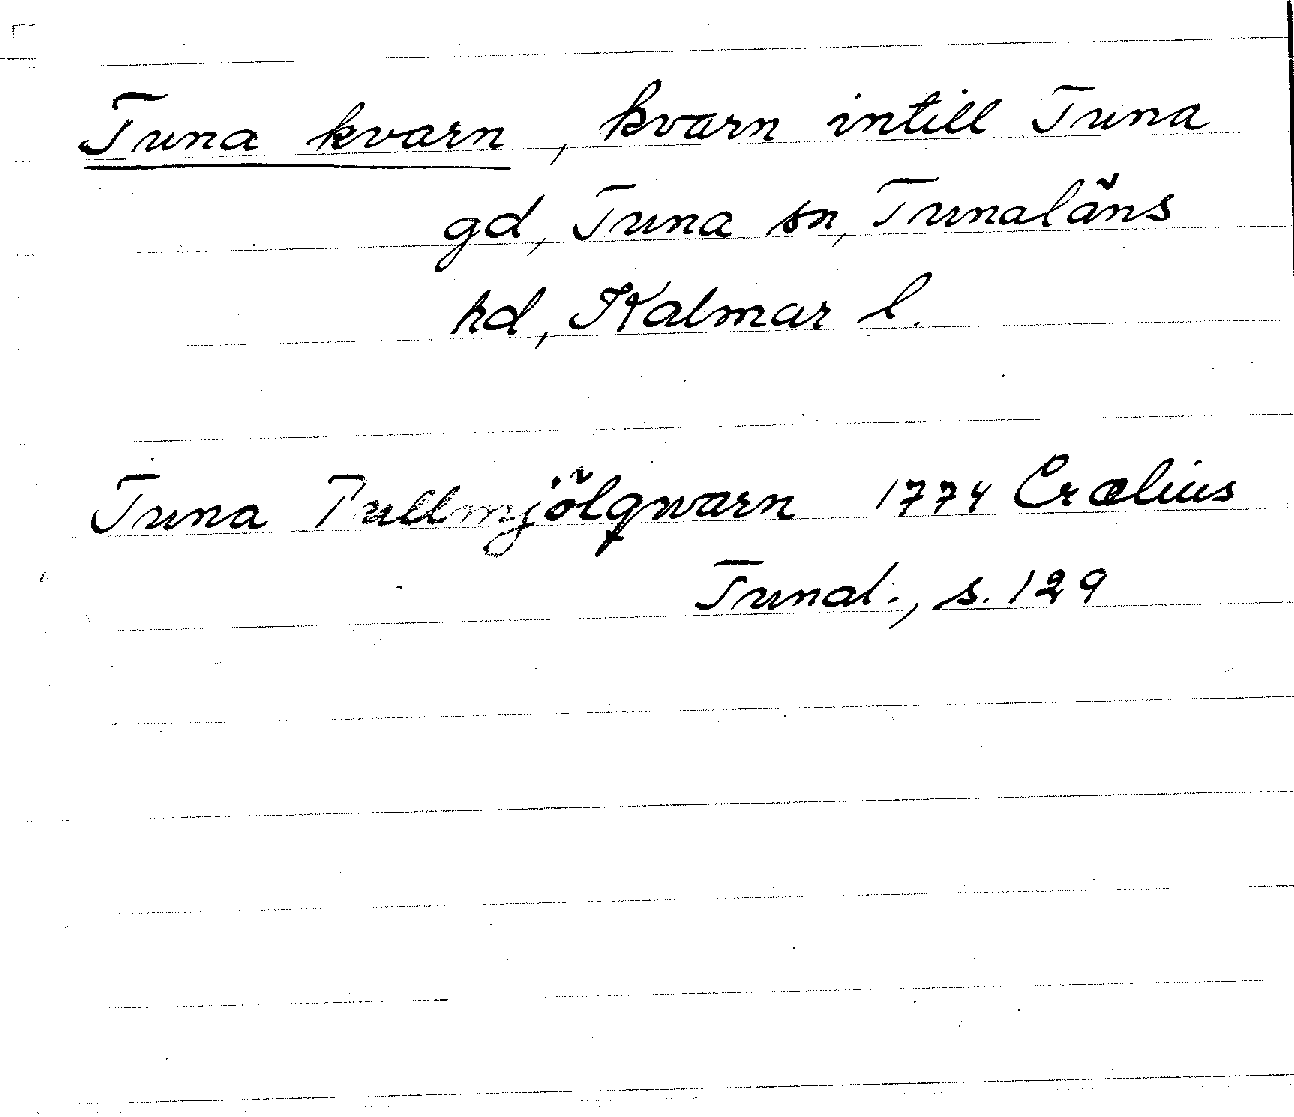 Tuna kvarn, kvarn intill Tuna
gd, Tuna sn, Tunaläns
hd, Kalmar l.
Tuna Tullmjölqwarn 1774 Crælius
Tunal., s. 129